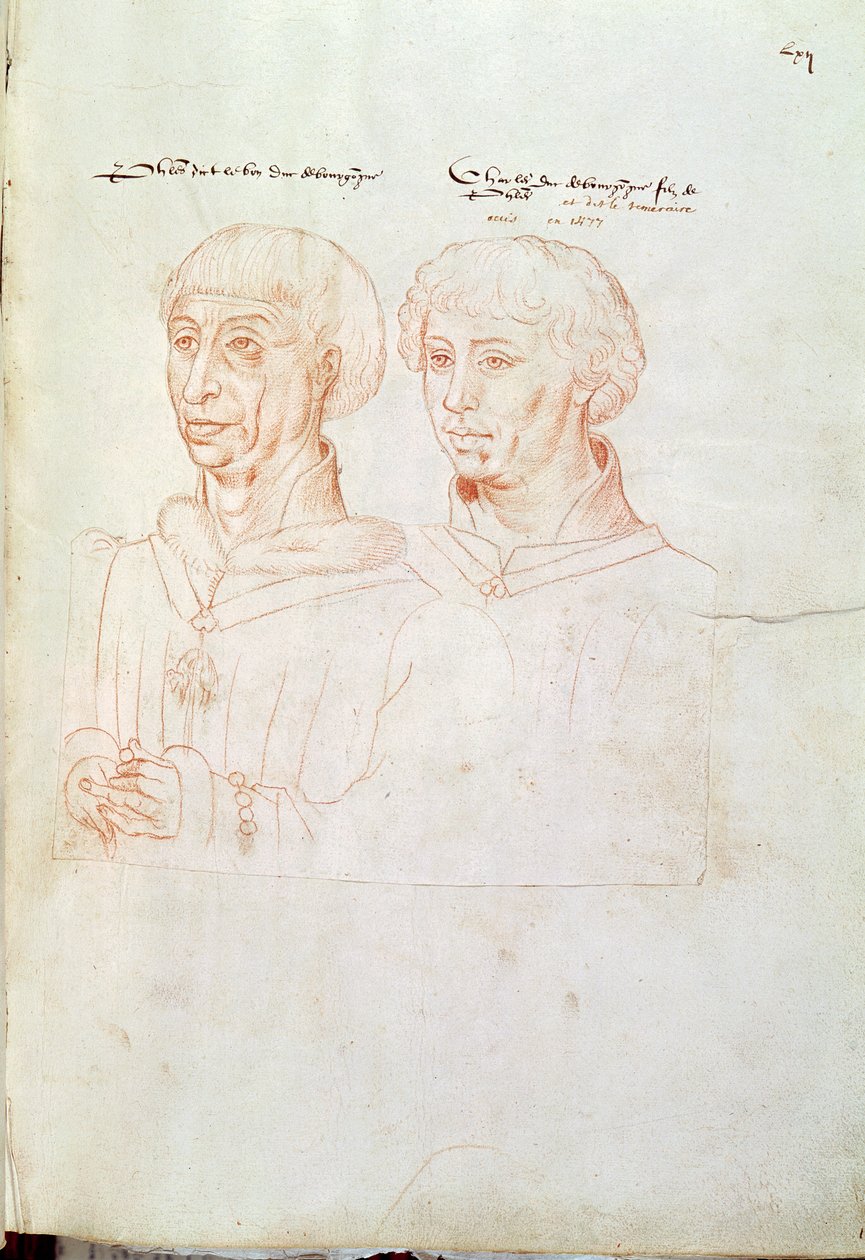 Lxij
Phles dict le bon duc de bourgogne
Charles duc de bourgogne filz de
Phles et dit le temeraire
occis en 1477